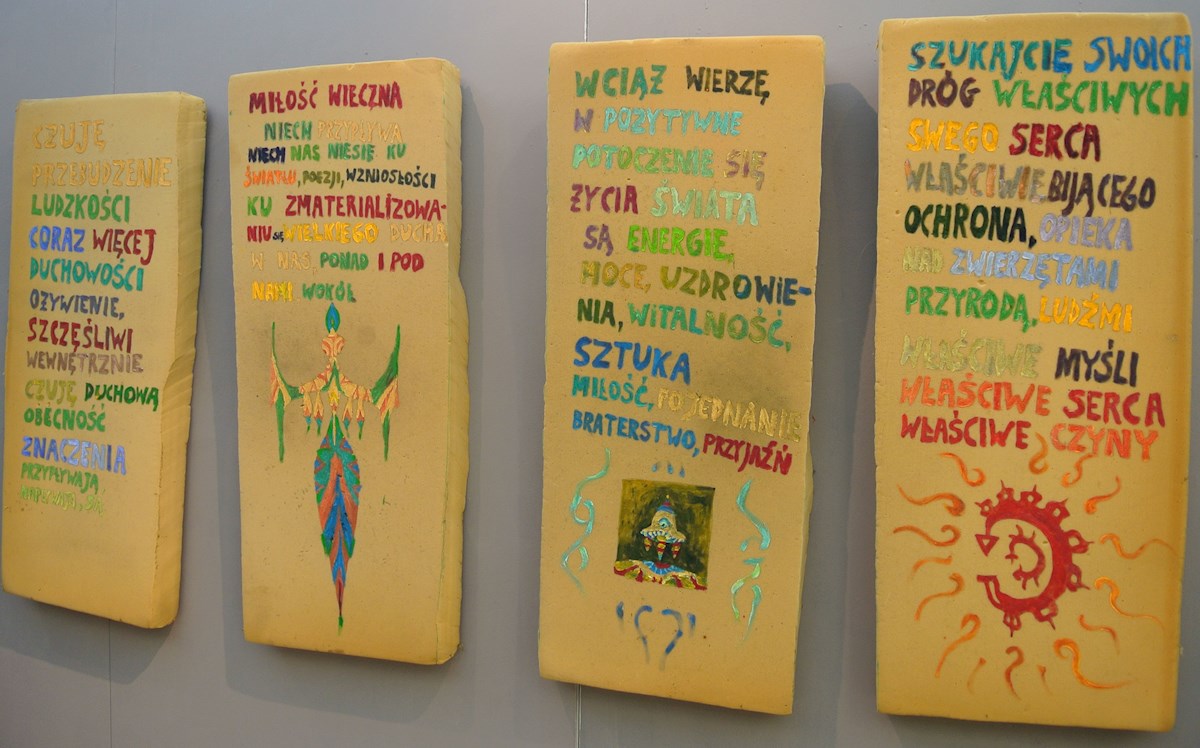 CZUJĘ
PRZEBUDZENIE
LUDZKOŚCI
CORAZ WIĘCEJ
DUCHOWOŚCI
OŻYWIENIE,
SZCZĘŚLIWI
WEWNĘTRZNIE
CZUJĘ DUCHOWĄ
OBECNOŚĆ
ZNACZENIA
PRZYPŁYWAJĄ
MIŁOŚĆ WIECZNA
NIECH PRZYPŁYWA
NIECH NAS NIESIE KU
ŚWIATŁU, POEZJI, WZNIOSŁOŚCI
KU ZMATERIALIZOWA-
NIU SIĘ WIELKIEGO DUCHA
W NAS, PONAD I POD
NAMI WOKÓŁ
WCIĄŻ WIERZĘ
W POZYTYWNE
POTOCZENIE SIĘ
ŻYCIA ŚWIATA
SĄ ENERGIE,
MOCE, UZDROWIE-
NIA, WITALNOŚĆ,
SZTUKA
MIŁOŚĆ, POJEDNANIE
BRATERSTWO, PRZYJAŹŃ
SZUKAJCIE SWOICH
DRÓG WŁAŚCIWYCH
SWEGO SERCA
WŁAŚCIWIE BIJĄCEGO
OCHRONA, OPIEKA
NAD ZWIERZĘTAMI
PRZYRODĄ, LUDŹMI
WŁAŚCIWE MYŚLI
WŁAŚCIWE SERCA
WŁAŚCIWE CZYNY